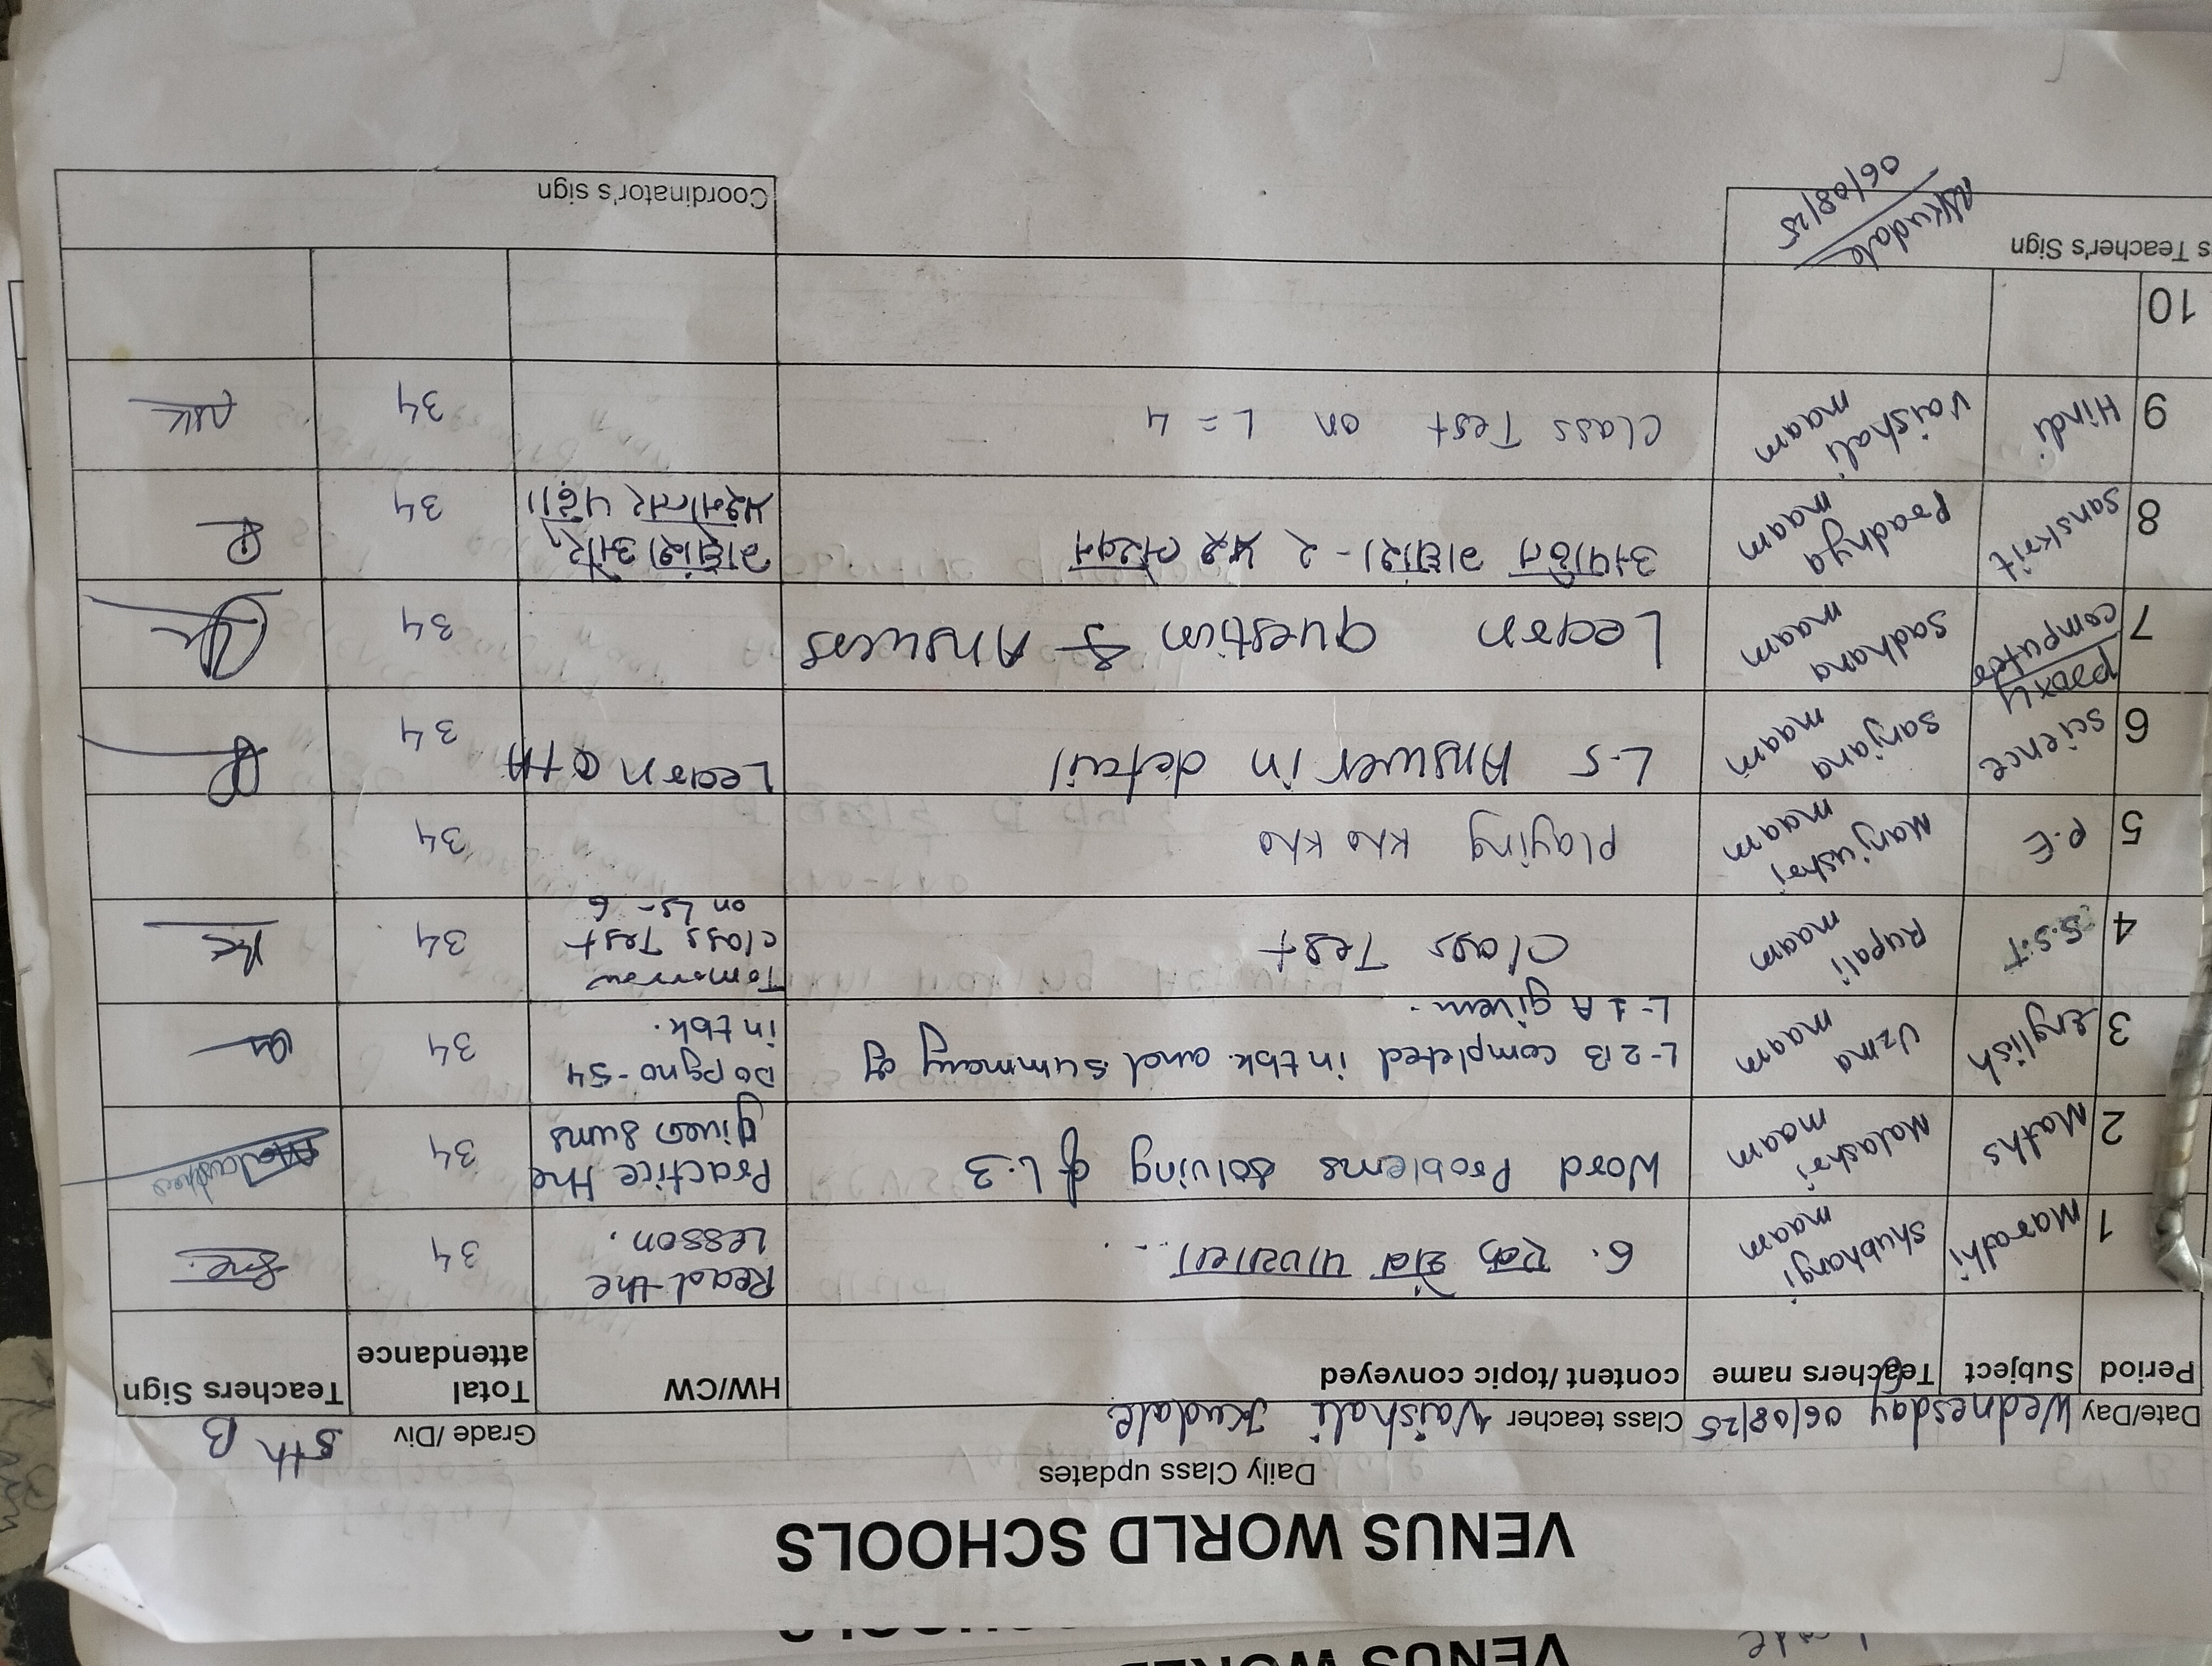 VENUS WORLD SCHOOLS
Daily Class updates
Date/Day Wednesday 06/08/25 Class teacher Vaishali Kudale Grade /Div 5th B
Period Subject Teachers name content/topic conveyed HW/CW Total attendance Teachers Sign
1 Marathi Shubhangi maam 6. Read the Lesson. 34
2 Maths Malashri maam Word Problems solving of L.3 Practice the given sums 34
3 English Uzma maam L-2B completed in tbk. and summary of L-1 A given. Do pg no-54 in tbk. 34
4 S.S.T Rupali maam Class Test Tomorrow class Test on Ls-6 34
5 P.E Manjushri maam Playing Kho Kho 34
6 Science Sanjana maam L-5 Answer in detail Learn Q+A 34
7 Proxy computer Sadhana maam Learn question & Answers 34
8 Sanskrit Pradnya maam अपठित गद्यांश - २ लेखन गद्यांश और प्रश्नोत्तर पढो। 34
9 Hindi Vaishali maam Class Test on L = 4 34
10
s Teacher's Sign Kudale Coordinator's sign
06/08/25